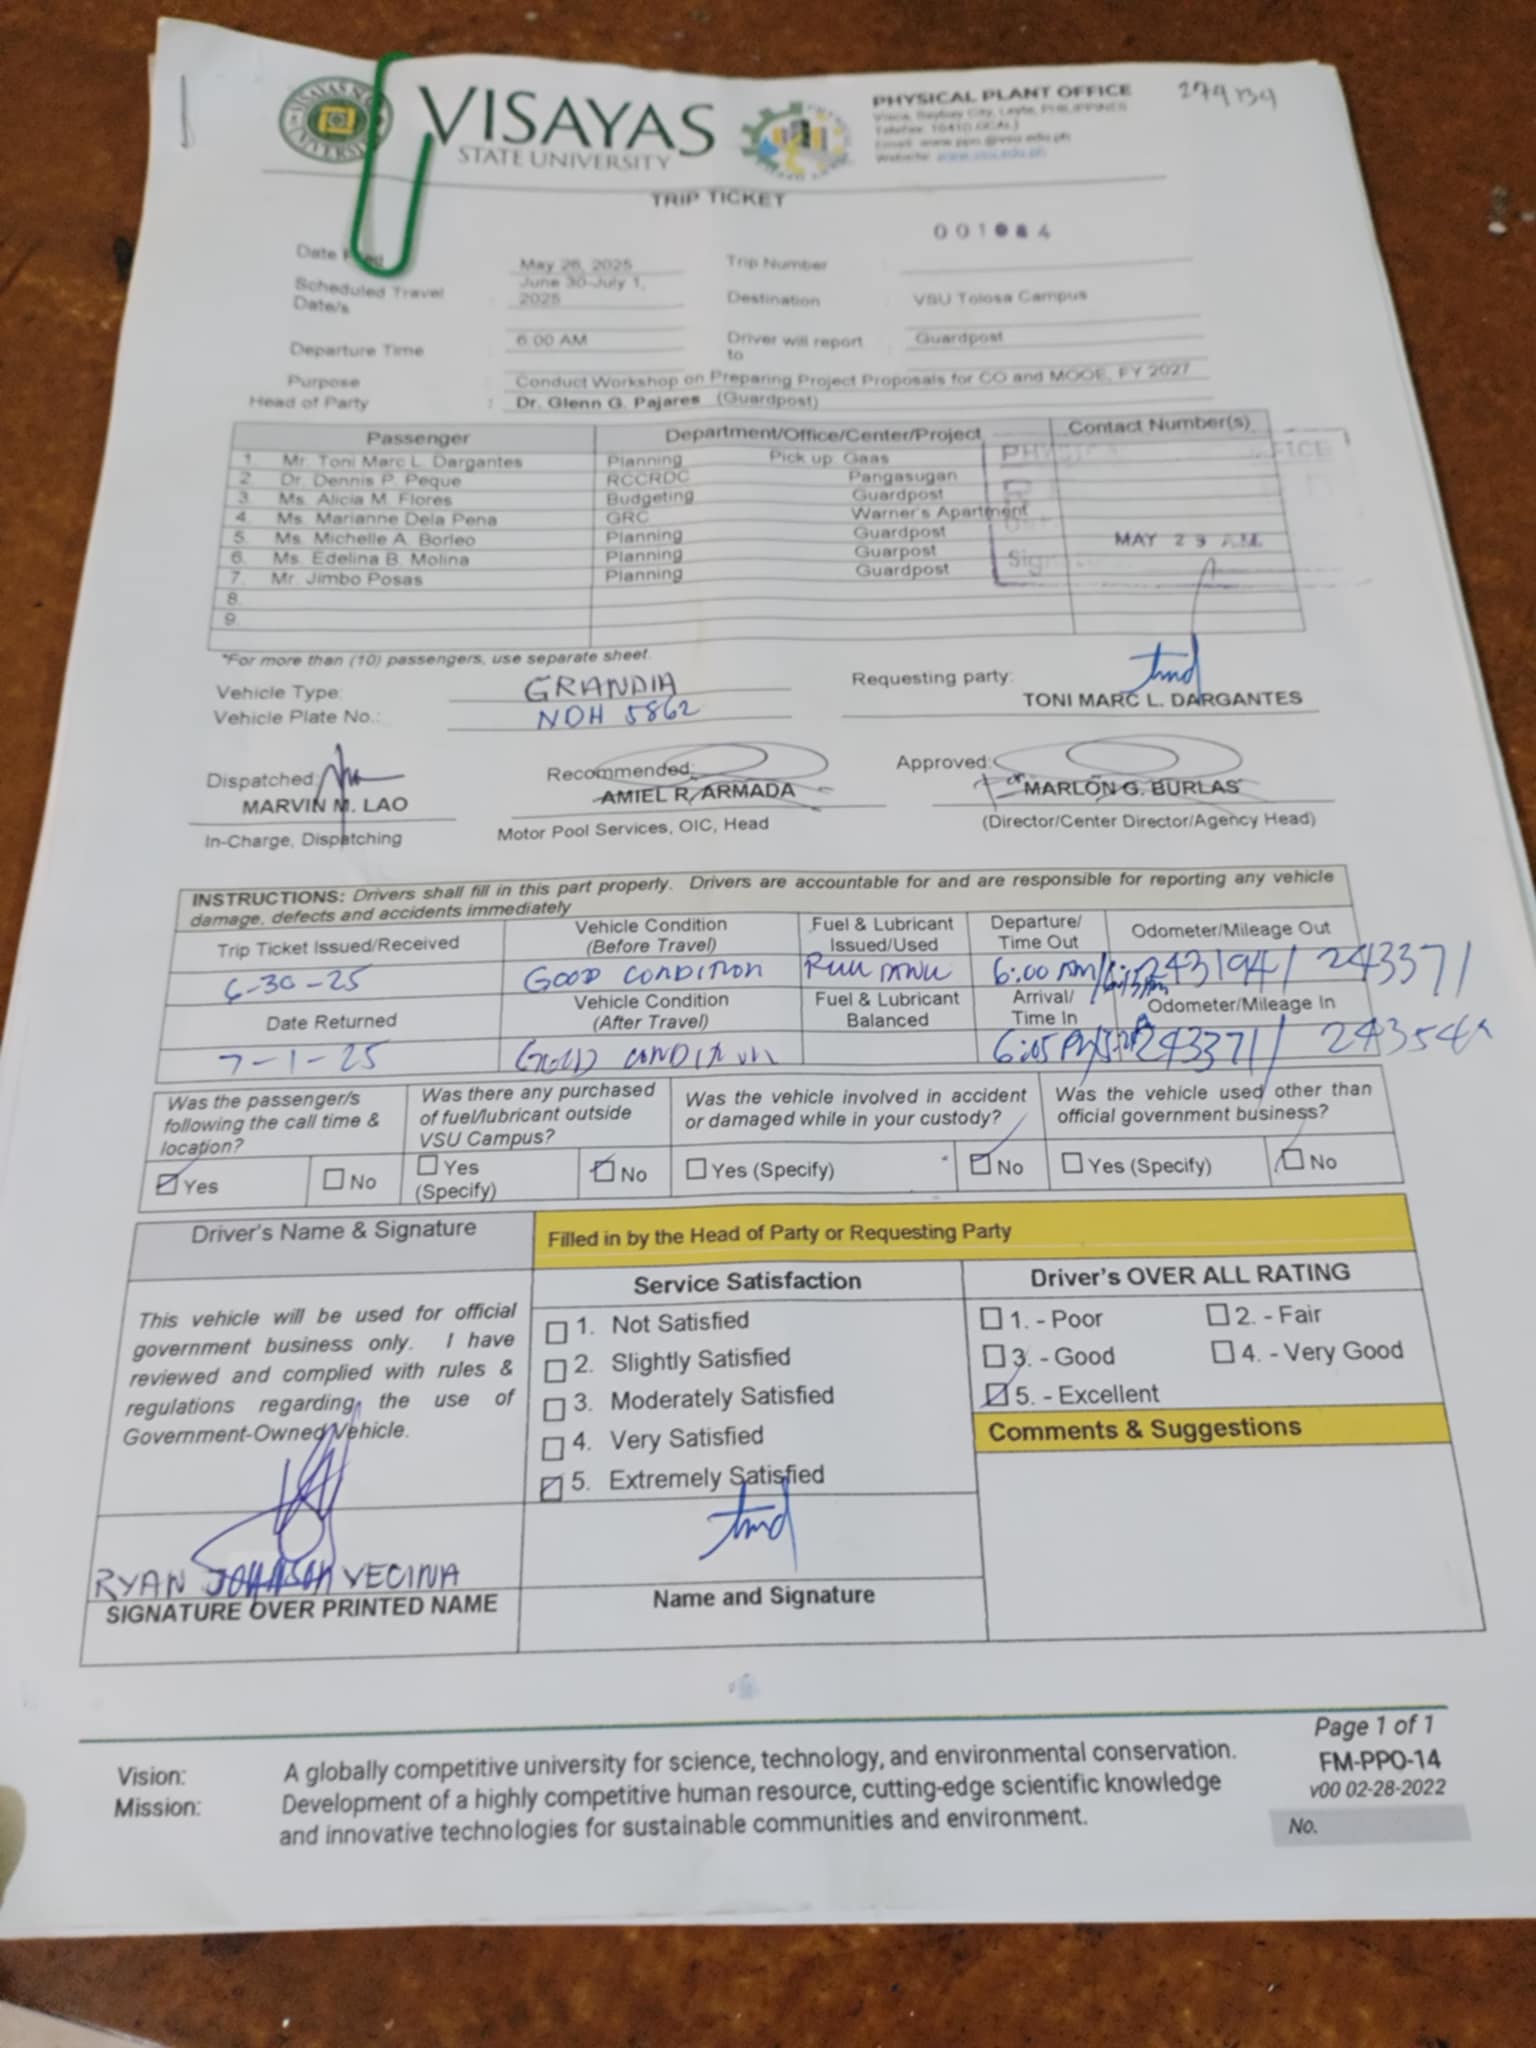 VISAYAS
STATE UNIVERSITY
PHYSICAL PLANT OFFICE
Visca, Baybay City, Leyte, PHILIPPINES
Website: www.vsu.edu.ph
TRIP TICKET
Date
May 26, 2025
Trip Number
Scheduled Travel Date/s
June 30-July 1, 2025
Destination
VSU Tolosa Campus
Departure Time : 6:00 AM
Driver will report to : Guardpost
Purpose : Conduct Workshop on Preparing Project Proposals for CO and MOOE, FY 2027
Head of Party : Dr. Glenn G. Pajares (Guardpost)
Passenger Department/Office/Center/Project Contact Number(s)
1. Mr. Toni Marc L. Dargantes Planning Pick up: Gaas
2. Dr. Dennis P. Peque RCCRDC Pangasugan
3. Ms. Alicia M. Flores Budgeting Guardpost
4. Ms. Marianne Dela Pena GRC Warner's Apartment
5. Ms. Michelle A. Borleo Planning Guardpost
6. Ms. Edelina B. Molina Planning Guarpost
7. Mr. Jimbo Posas Planning Guardpost
8.
9.
MAY 29 A.M.
*For more than (10) passengers, use separate sheet.
Vehicle Type: GRANDIA
Vehicle Plate No.: NDH 5862
Requesting party:
TONI MARC L. DARGANTES
Dispatched:
MARVIN M. LAO
In-Charge, Dispatching
Recommended:
AMIEL R. ARMADA
Motor Pool Services, OIC, Head
Approved:
MARLON G. BURLAS
(Director/Center Director/Agency Head)
INSTRUCTIONS: Drivers shall fill in this part properly. Drivers are accountable for and are responsible for reporting any vehicle
damage, defects and accidents immediately
Trip Ticket Issued/Received
Vehicle Condition (Before Travel)
Fuel & Lubricant Issued/Used
Departure/ Time Out
Odometer/Mileage Out
6-30-25 GOOD CONDITION 6:00 AM/ 243194/ 243371
Date Returned
Vehicle Condition (After Travel)
Fuel & Lubricant Balanced
Arrival/ Time In
Odometer/Mileage In
7-1-25 GOOD CONDITION 6:05 PM/ 243371/
Was the passenger/s following the call time & location?
Was there any purchased of fuel/lubricant outside VSU Campus?
Was the vehicle involved in accident or damaged while in your custody?
Was the vehicle used other than official government business?
Yes No Yes (Specify) No Yes (Specify) No Yes (Specify) No
Driver's Name & Signature
Filled in by the Head of Party or Requesting Party
Service Satisfaction
Driver's OVER ALL RATING
This vehicle will be used for official
government business only. I have
reviewed and complied with rules &
regulations regarding the use of
Government-Owned Vehicle.
1. Not Satisfied
2. Slightly Satisfied
3. Moderately Satisfied
4. Very Satisfied
5. Extremely Satisfied
1. - Poor 2. - Fair
3. - Good 4. - Very Good
5. - Excellent
Comments & Suggestions
RYAN JOHNSON VECINA
SIGNATURE OVER PRINTED NAME
Name and Signature
Page 1 of 1
FM-PPO-14
v00 02-28-2022
No.
Vision: A globally competitive university for science, technology, and environmental conservation.
Mission: Development of a highly competitive human resource, cutting-edge scientific knowledge
and innovative technologies for sustainable communities and environment.